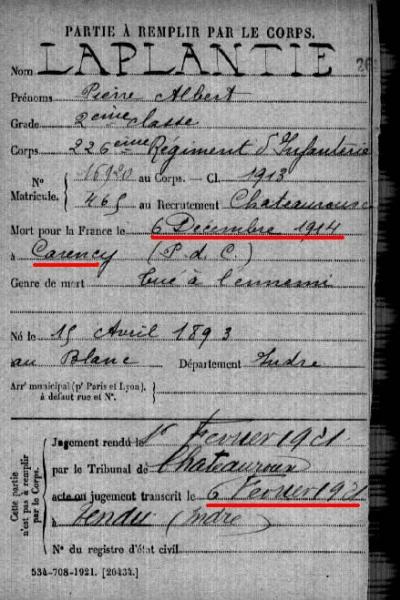 PARTIE À REMPLIR PAR LE CORPS.
Nom LAPLANTIE
Prénoms Pierre Albert
Grade 2ème classe
Corps 226ème Régiment d'Infanterie
N° Matricule. { 16920 au Corps. — Cl. 1913
465 au Recrutement Chateauroux
Mort pour la France le 6 Décembre 1914
à Carency (P. d. C.)
Genre de mort Tué à l'ennemi
Né le 15 Avril 1893
au Blanc Département Indre
Arrt municipal (pr Paris et Lyon), à défaut rue et N°.
Cette partie n'est pas à remplir par le Corps.
Jugement rendu le Fevrier 1921
par le Tribunal de Chateauroux
acte ou jugement transcrit le 6 Fevrier 1921
à (Indre)
N° du registre d'état civil
534-708-1921. [26434.]